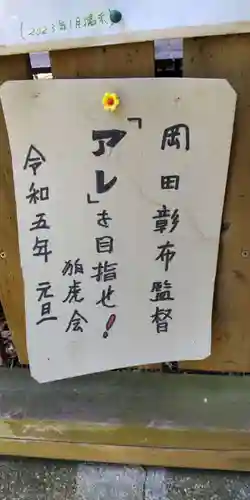 (2023年1月満水)
岡田彰布監督
「アレ」を目指せ!
狛虎会
令和五年 元旦